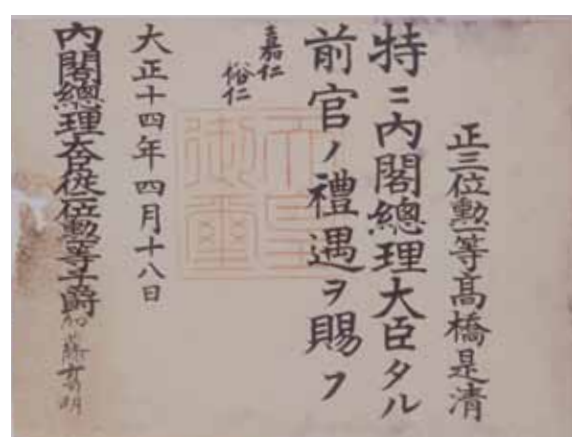 正三位勲一等髙橋是清
特ニ内閣總理大臣タル
前官ノ禮遇ヲ賜フ
嘉仁
裕仁
大正十四年四月十八日
内閣總理大臣従二位勲一等子爵加藤髙明
天皇御璽